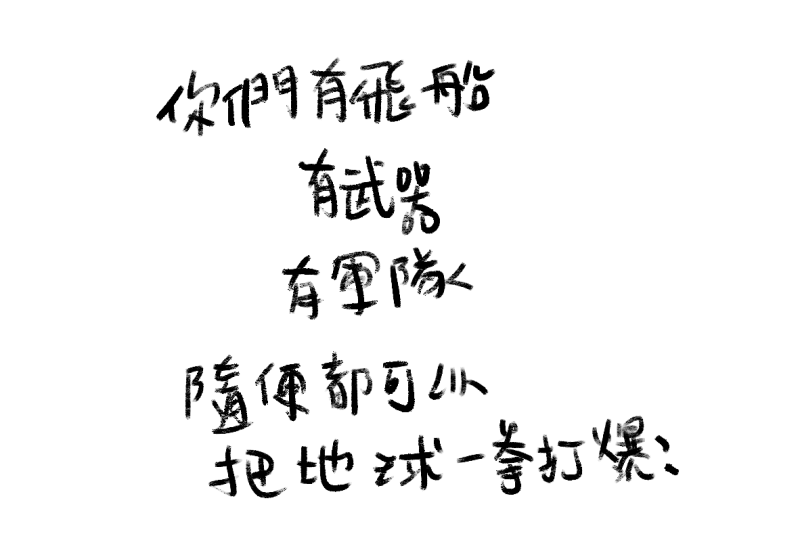 你們有飛船
有武器
有軍隊
隨便都可以
把地球一拳打爆：